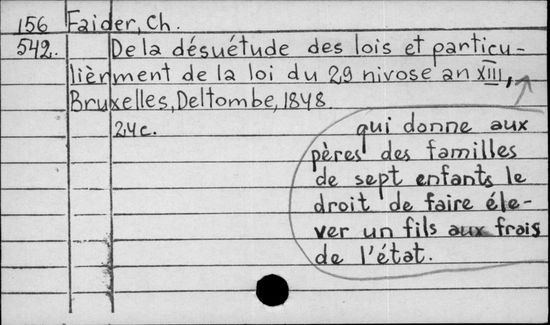 156 Faider, Ch.
542. De la désuétude des lois et particu-
lièrment de la loi du 29 nivose an XIII,
Bruxelles, Deltombe, 1848
24c.
qui donne aux
pères des familles
de sept enfants le
droit de faire éle-
ver un fils aux frais
de l'état.